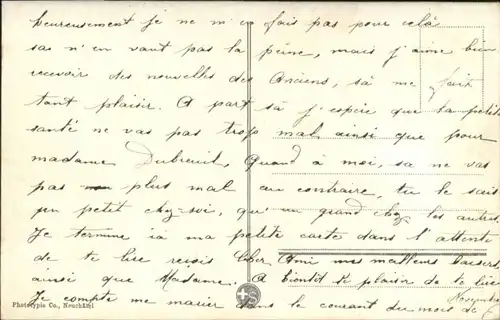 heureusement je ne m'en fais pas pour celà
sa n'en vaut pas la peine, mais j'aime bien
recevoir des nouvelles des Anciens, sà me fait
tant plaisir. A part sà j'espère que ta petite
santé ne vas pas trop mal ainsi que pour
madame Dubreuil, Quand à moi, sa ne vas
pas plus mal au contraire, tu le sais
un petit chez-soi, qu'un grand chez les autres
Je termine ia ma petite carte dans l'attente
de te lire reçois Cher Ami mes meilleurs baisers,
ainsi que Madame. A bientôt le plaisir de te lire
Je compte me marier dans le courant du mois de
Novembre
Phototypie Co., Neuchâtel